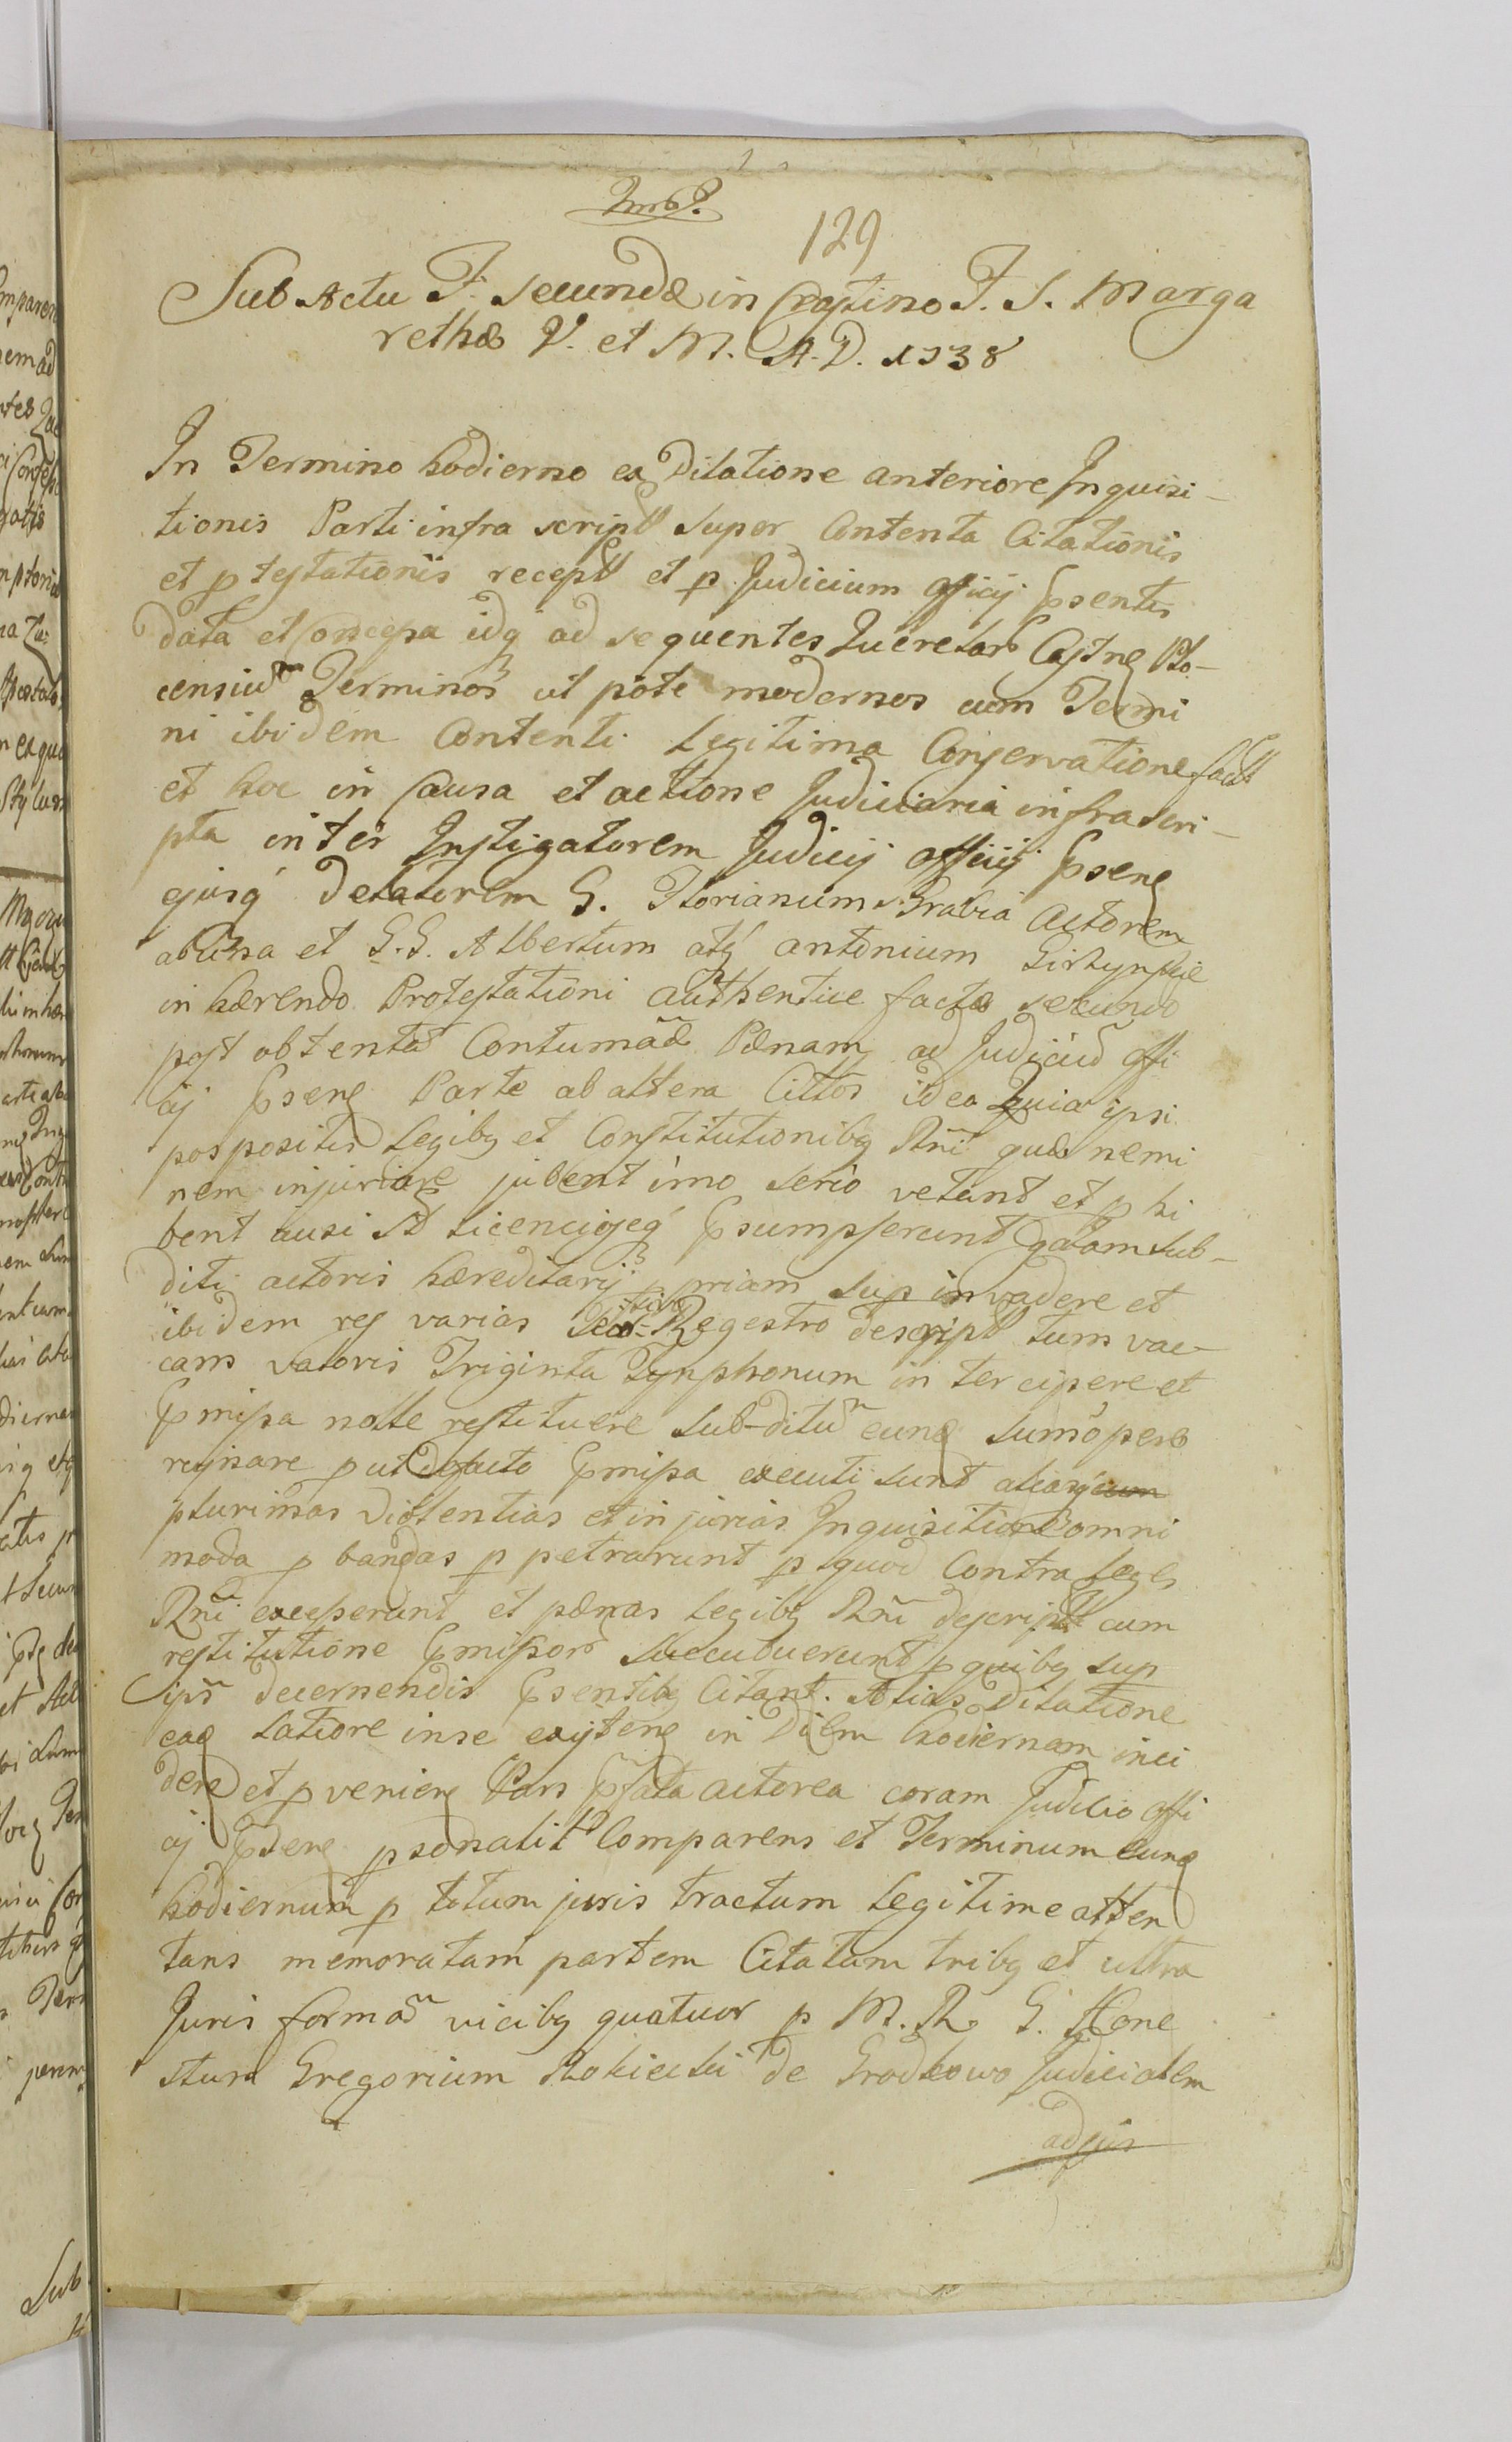 129
Sub Actu F. Secunda in Crastino F. S. Marga
rethæ V. et M. A. D. 1738
In Termino hodierno ex Dilatione anteriore Inquisi-
tionis Parti infra script Super Contenta Citationis
et ptestationis recept et p Judicium officij psentis
data et Concessa idq ad sequentes Querelar Castren Plo-
censiu Terminos ut pote modernos cum Termi
ni ibidem Contenti Legitima Conservatione fact
et hoc in Causa et actione Judiciaria infra scri-
pta inter Instigatorem Judicij officij psen
ejusq Delatorem G. Florianum Grabia Actorem
ab una et G.G. Albertum atq antonium
in hærendo Protestationi authentice factæ secundo
post obtenta Contumaæ Pænam ad Judiciu offi
cij psen Parte ab altera Cittos ideo Quia ipsi
pospositis Legibq et Constitutionibq Rni quæ nemi
nem injuriare jubent imo serio vetant et phi
bent ausi st licenciose psumpserunt domum sub-
diti actoris hæreditarij ppriam sup invadere et
ibidem res varias Regestro descript tum vac-
cam valoris Triginta Tynphonum in tercipere et
pmissa nolle restituere sub-ditu eund sumopere
ruinare put defacto pmissa executi sunt aliasq
plurimas Violentias et injurias Inquisitione omni
moda pbandas ppetrarunt p quod Contra Leges
Rni exceperunt et pænas Legibq Rni descript cum
restitutione pmissor succubuerunt p quibq sup
ips decernendis psentibq Citant. Alias Dilatione
ead latiore inse existen in Diem hodiernam inci
den et pvenien Pars pfata actorea coram Judicio offi
cij psen psonalit Comparens et Terminum eund
hodiernum p totum juris tractum Legitime atten
tans memoratam partem Citatam tribq et ultra
Juris forma vicibq quatuor p M. R. G. Hone
stum Gregorium Rokicki de Grodkowo Judicialem
ad jus